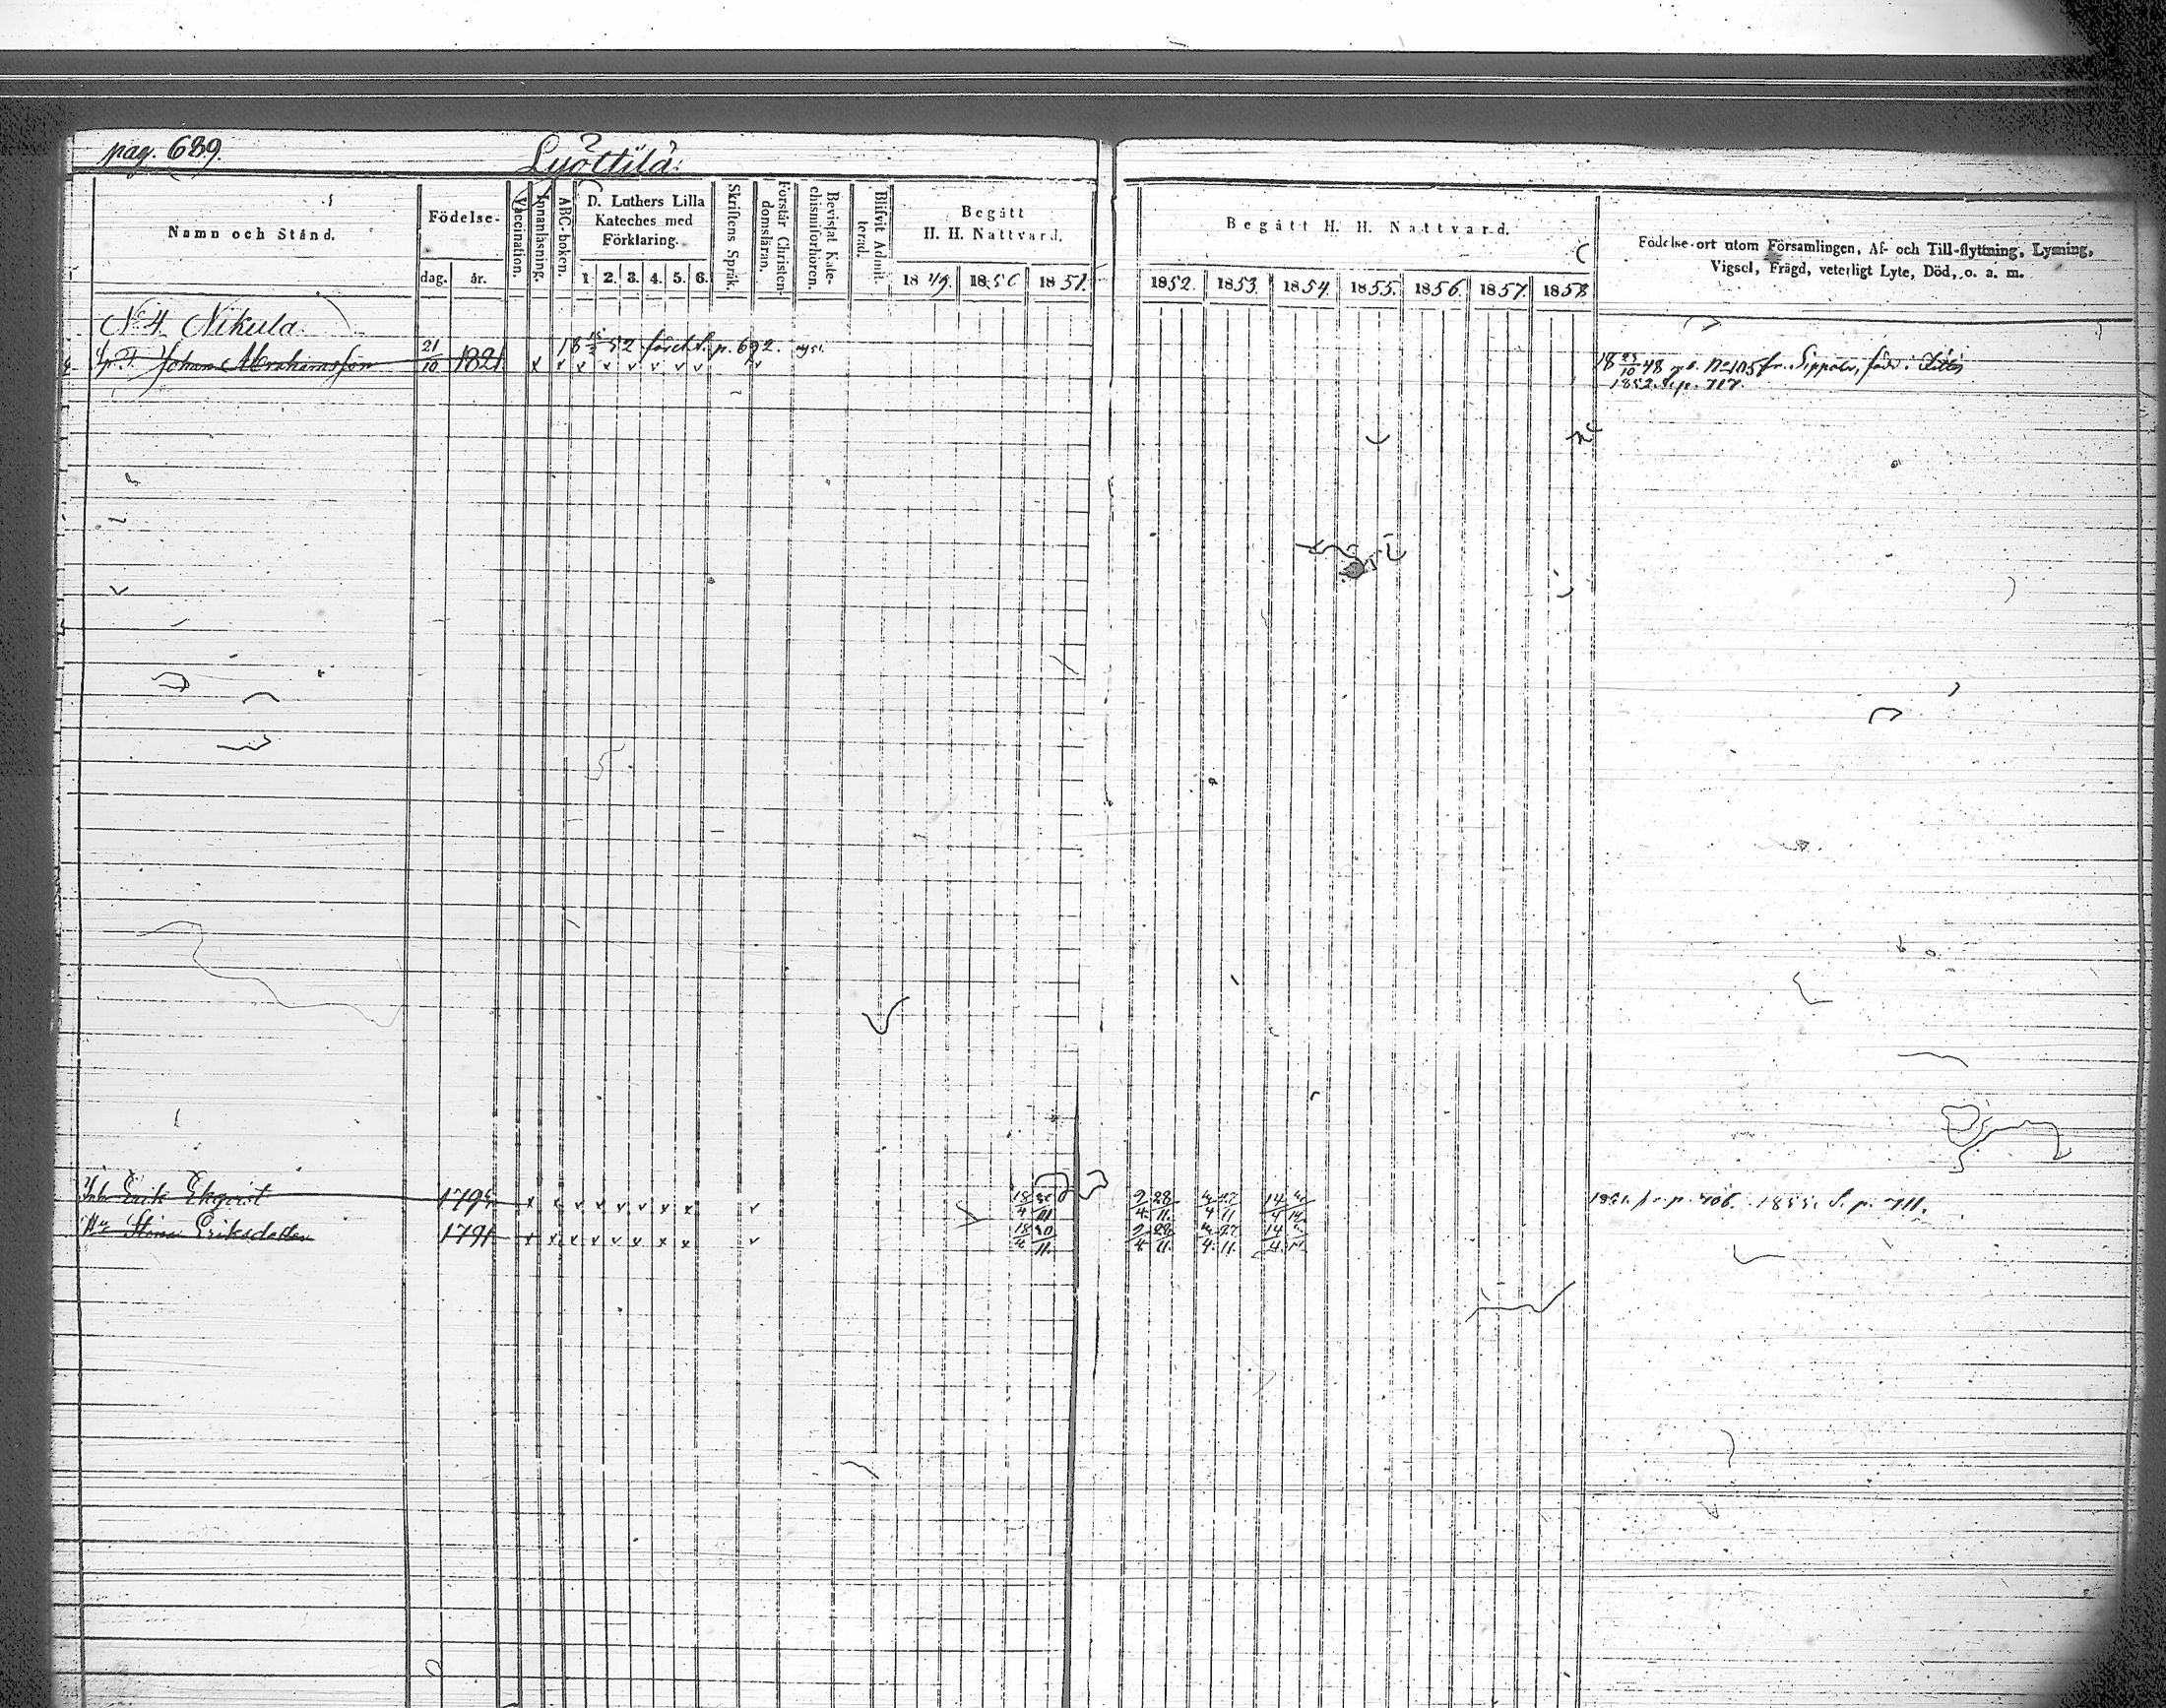 pag. 689.
Lyöttilä:
Namn och Stånd.
Födelse-
dag.
år.
Vaccination.
Innanläsning.
ABC-boken.
D. Luthers Lilla
Kateches med
Förklaring.
1 2. 3. 4. 5. 6.
Skriftens Språk.
Förstår Christen-
domsläran.
Bevistat Kate-
chismiförhören.
Blifvit Admit-
terad.
Begått
H. H. Nattvard.
1849 1850 1851.
Begått H. H. Nattvard.
1852. 1853. 1854. 1855. 1856. 1857. 1858
Födelse-ort utom Församlingen, Af- och Till-flyttning, Lysning,
Vigsel, Frägd, veterligt Lyte, Död, o. a. m.
No 4 Nikula.
52 p. 692.
Johan Abrahamsson 21/10 1821. x x x x v v v v
18 23/10 48 No 105 fr. Sippola, född i
1852. p. 717.
Erik Ekqvist 1794 x x x x v v x x v 18/4 30/11 9/4 28/11. 4/4 27/11 14/4
1855. p. 711.
Stina Eriksdotter 1791 x x x x v v x x v 18/4 30/11. 9/4 28/11. 4/4. 27/11. 14/4.